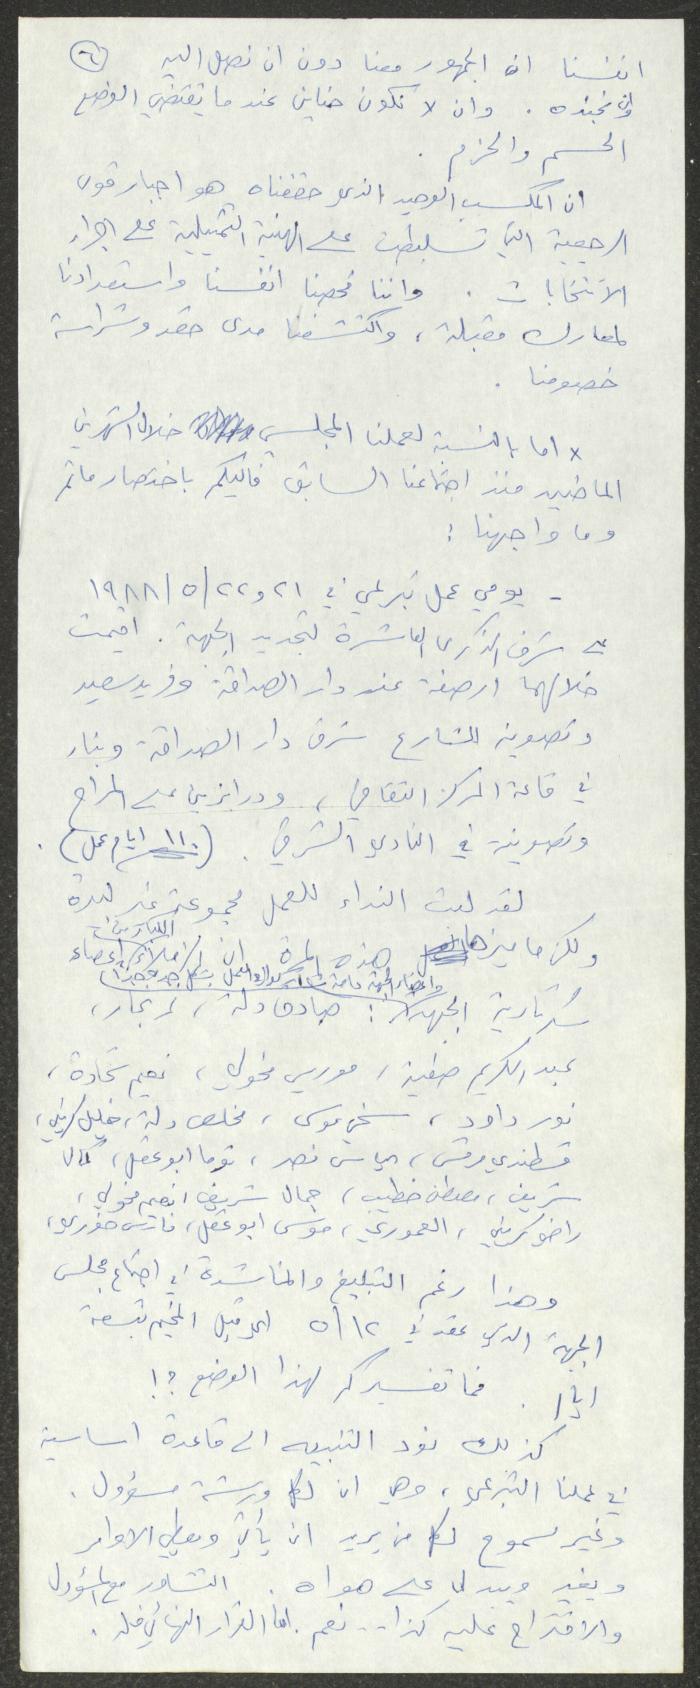 انفسنا ان الجمهور معنا دون ان نصل اليه
وان نجنده . وان لا نكون عندما يقتضي الوضع
الحسم والحزم .
ان المكسب الوحيد الذي حققناه هو اجبار قوى
الرجعية التي تسلطت على الهيئة التمثيلية على اجراء
الانتخابات . واننا فحصنا انفسنا واستعدادنا
لمعارك مقبلة ، واكتشفنا مدى حقد وشراسة
خصومنا .
x اما بالنسبة لعملنا المجلسي خلال الشهرين
الماضيين منذ اجتماعنا السابق فاليكم باختصار ما تم
وما واجهنا :
- يومي عمل تبرعي في ٢١ و ٢٢/٥/١٩٨٨
على شرف الذكرى العاشرة لتجديد الجبهة . اقيمت
خلالهما ارصفة عند دار الصداقة وفريد سعيد
وتصوينة للشارع شرق دار الصداقة وبناء
في قاعة المركز الثقافي ، ودرابزين على المراح
وتصوينة في النادي الشرقي . (١١٠ ايام عمل) .
لقد لبت النداء للعمل مجموعة غير
ولكن ما ميزها هذه المرة ان اعضاء
سكرتارية الجبهة : صادق دلة ، نجار ،
عبد الكريم صفية ، موريس مخولي ، نعيم شحادة ،
نور داود ، موسى ، مخلص دلة ، خليل كريني ،
قسطندي مرقس ، الياس نصر ، توما ابو عقل ، كمال
شريف ، مصطفى خطيب ، جمال شريف ، نعيم مخولي ،
راضي كريني ، العموري ، موسى ابو عقل ، فارس خوري ،
وهذا رغم التبليغ والمناشدة في اجتماع مجلس
الجبهة الذي عقد في ١٢/٥ اي قبل المخيم بتسعة
ايام . فما تفسيركم لهذا الوضع ؟!
كذلك نود التنبيه الى قاعدة اساسية
في عملنا التبرعي ، وهي ان لكل ورشة مسؤول .
وغير مسموح لكل من يريد ان يأتي ويعطي الاوامر
ويغير ويبدل على هواه . التشاور مع المسؤول
والاقتراح عليه كذا .. نعم . اما القرار النهائي فله .